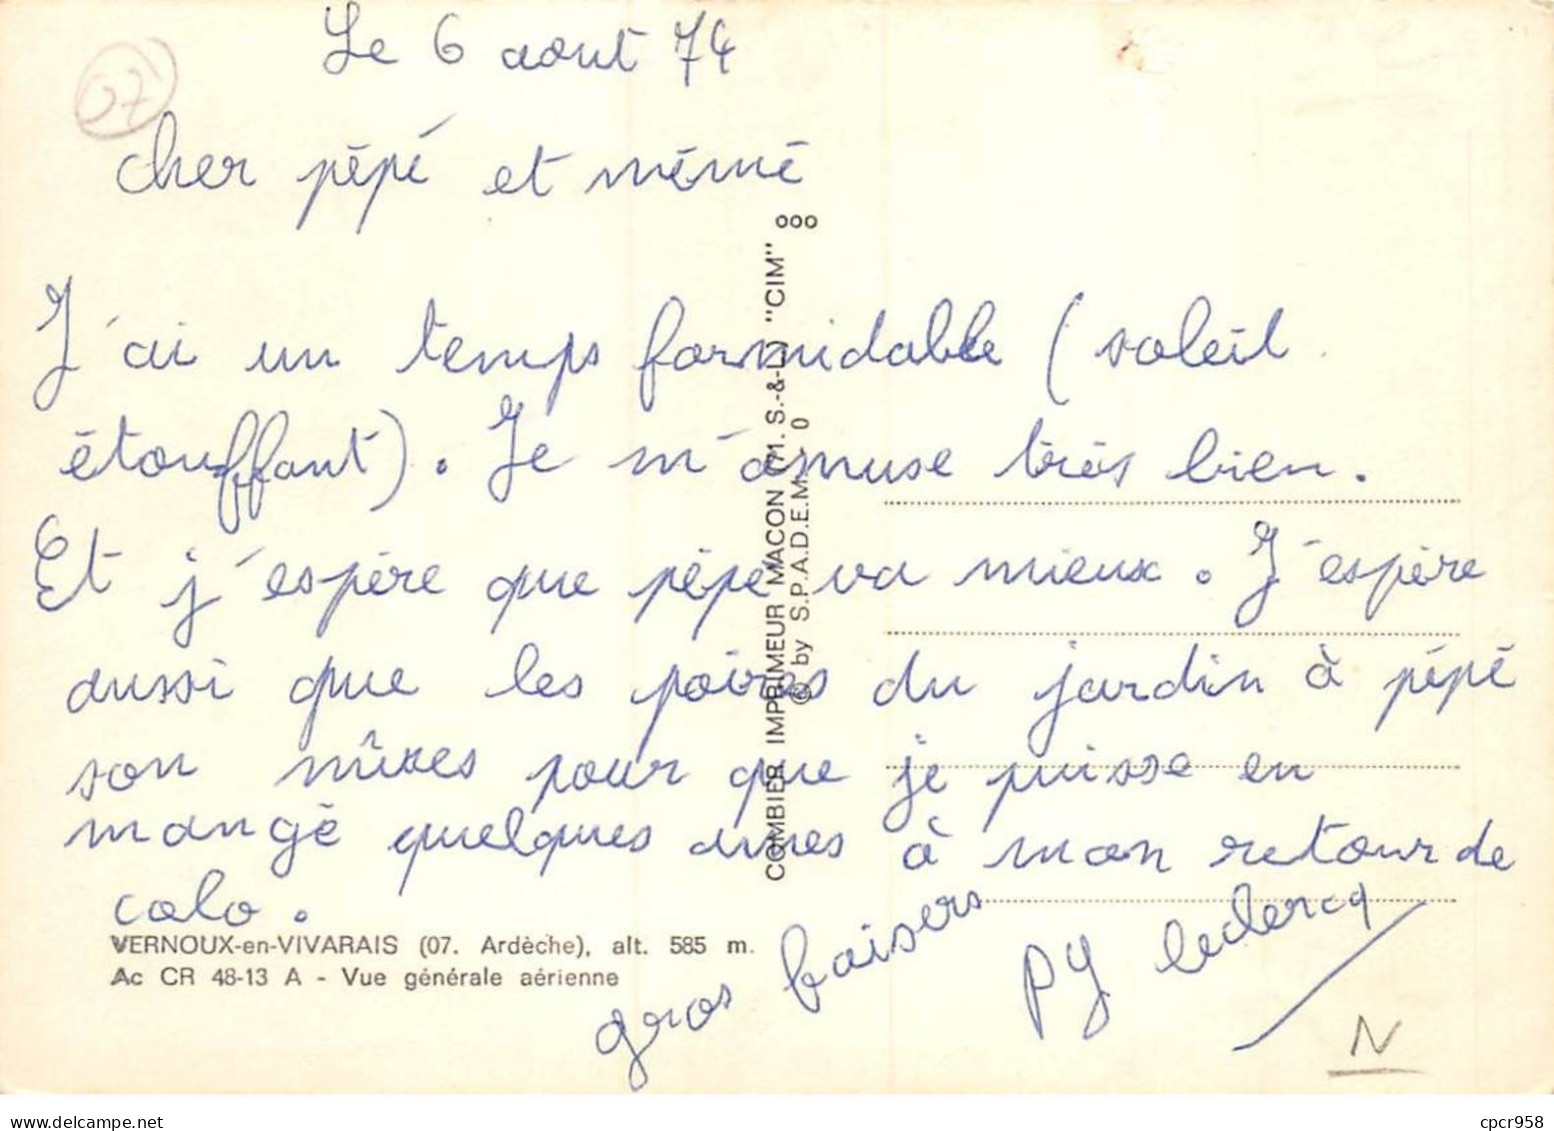 Le 6 aout 74
07
cher pépé et mémé
J'ai un temps formidable (soleil
étouffant). Je m'amuse très bien.
Et j'espère que pépé va mieux. J'espère
aussi que les poires du jardin à pépé
son mûres pour que je puisse en
mangé quelques unes à mon retour de
colo.
gros baisers
PY leclercq
N
VERNOUX-en-VIVARAIS (07. Ardèche), alt. 585 m.
Ac CR 48-13 A - Vue générale aérienne
COMBIER IMPRIMEUR MACON (71. S.-&-L.) "CIM"
© by S.P.A.D.E.M. - 0
ooo
cpcr958